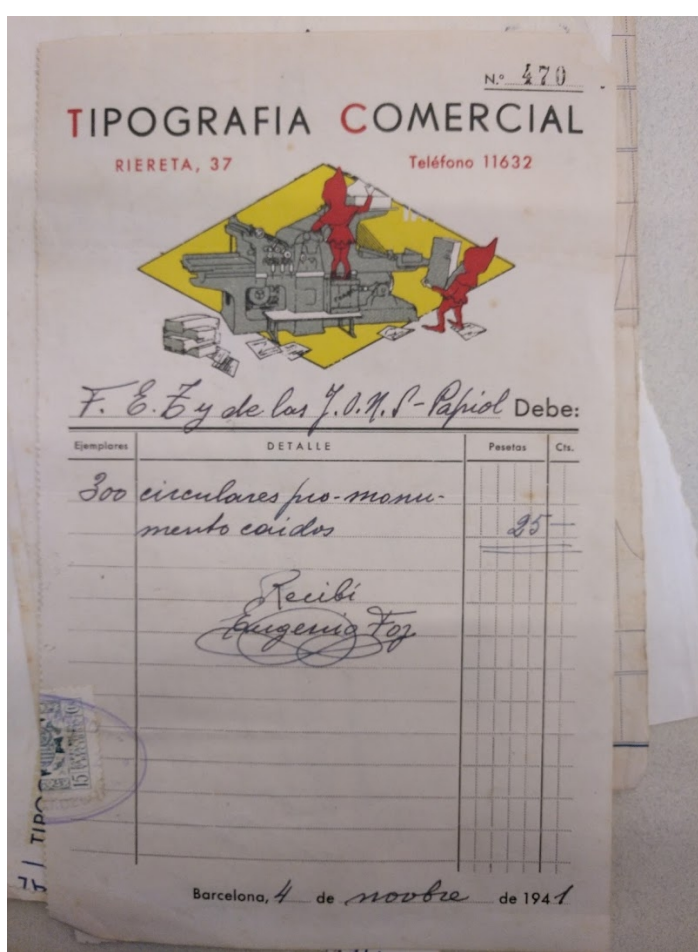 N.º 470
TIPOGRAFIA COMERCIAL
RIERETA, 37 Teléfono 11632
F. E. T y de las J.O.N.S-Papiol Debe:
Ejemplares DETALLE Pesetas Cts.
300 circulares pro-monu-
mento caidos 25 —
Recibí
Eugenio Foz
15
TIPOG
Barcelona, 4 de novbre de 1941